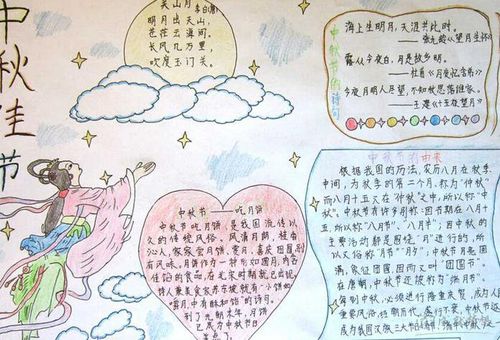 中秋佳节
关山月
李白(唐)
明月出天山,
苍茫云海间。
长风几万里,
吹度玉门关。
中秋节的诗句
海上生明月,天涯共此时。
——张九龄《望月怀远》
露从今夜白,月是故乡明。
——杜甫《月夜忆舍弟》
今夜月明人尽望,不知秋思落谁家。
——王建《十五夜望月》
中秋节——吃月饼
中秋节吃月饼,是我国流传已
久的传统风俗。风清月朗,桂香
沁人,家家尝月饼,赏月,喜庆团圆,别
有风味。月饼作为一种形如圆月,内含
佳馅的食品,在北宋时期就已出现。
诗人兼美食家苏东坡就有"小饼如
嚼月中有酥和饴"的诗句。
到了元朝末年,月饼
已成为中秋节日
美点了。
中秋节的由来
根据我国的历法,农历八月在秋季
中间,为秋季的第二个月,称为"仲秋"
而八月十五又在"仲秋"之中,所以称"中
秋"。中秋节有许多别称:因节期在八月十
五,所以称"八月节"、"八月半";因中秋的
主要活动都是围绕"月"进行的,所
以又俗称"月节""月夕";中秋节月亮圆
满,象征团圆,因而又叫"团圆节"。
在唐朝,中秋节还被称为"端正月"